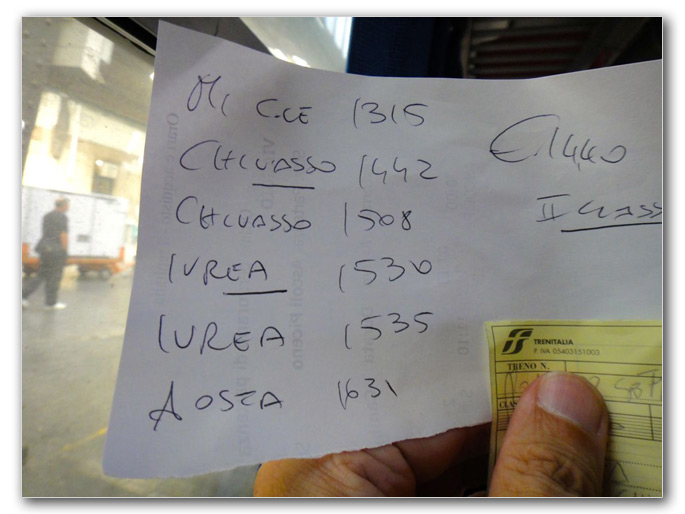 MI C.LE 1315
CHIVASSO 1442
CHIVASSO 1508
IVREA 1530
IVREA 1535
AOSTA 1631
€ 14,40
II CLASS
TRENITALIA
P. IVA 05403151003
TRENO N.
CLAS